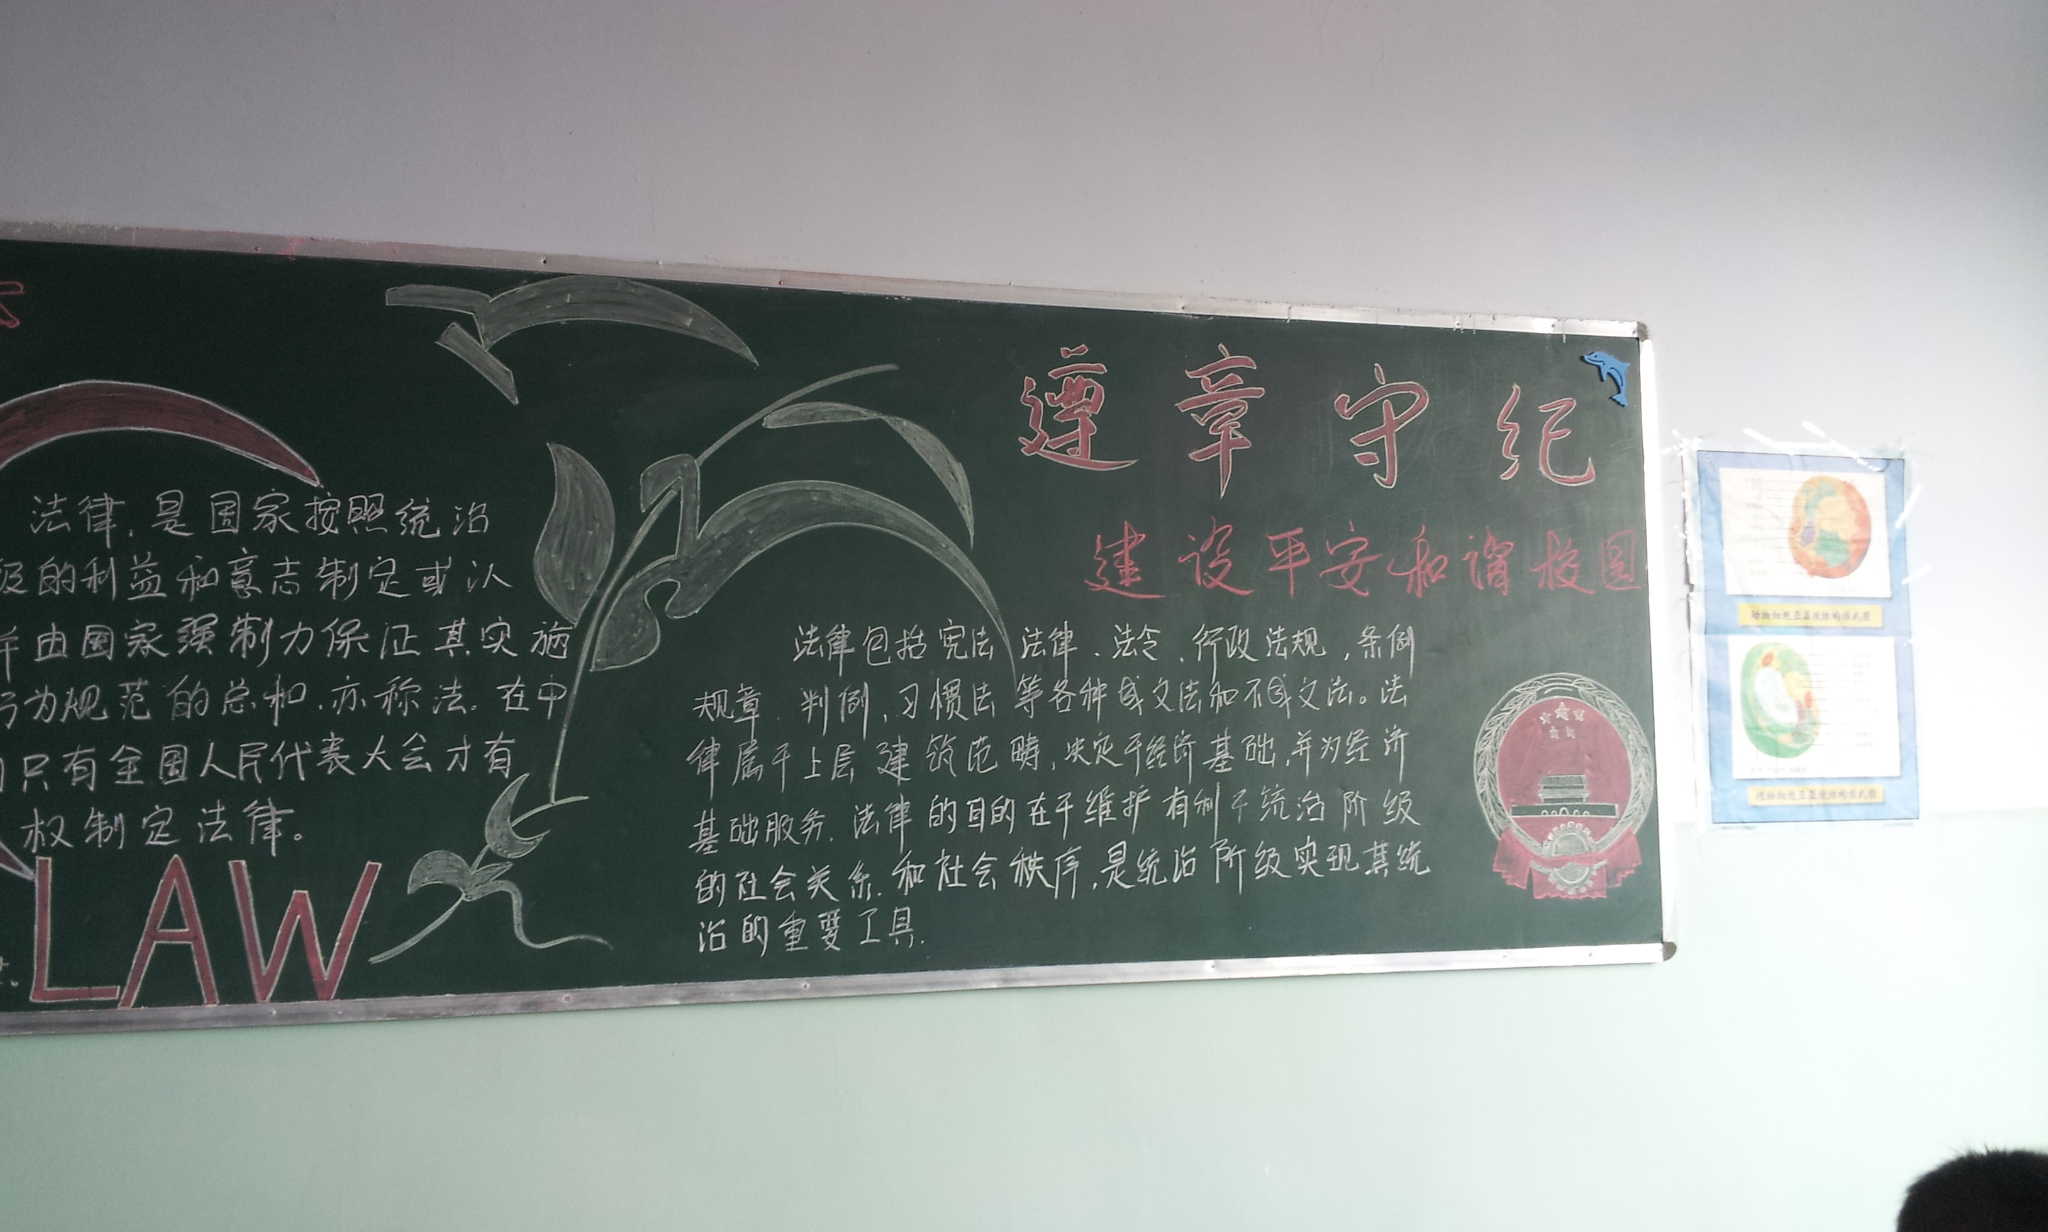 法律,是国家按照统治
级的利益和意志制定或认
由国家强制力保证其实施
行为规范的总和.亦称法.在中
只有全国人民代表大会才有
权制定法律。
LAW
遵章守纪
建设平安和谐校园
法律包括宪法 法律、法令、行政法规,条例
规章、判例,习惯法等各种成文法和不成文法。法
律属于上层建筑范畴,决定于经济基础,并为经济
基础服务.法律的目的在于维护有利于统治阶级
的社会关系.和社会秩序,是统治阶级实现其统
治的重要工具.
动物细胞亚显微结构模式图
植物细胞亚显微结构模式图